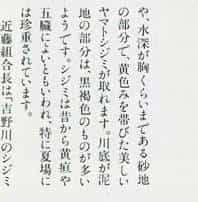 や、水深が胸くらいまである砂地
の部分で、黄色みを帯びた美しい
ヤマトシジミが取れます。川底が泥
地の部分は、黒褐色のものが多い
ようです。シジミは昔から黄疸や
五臓によいといわれ、特に夏場に
は珍重されています。
近藤組合長は、「吉野川のシジミ